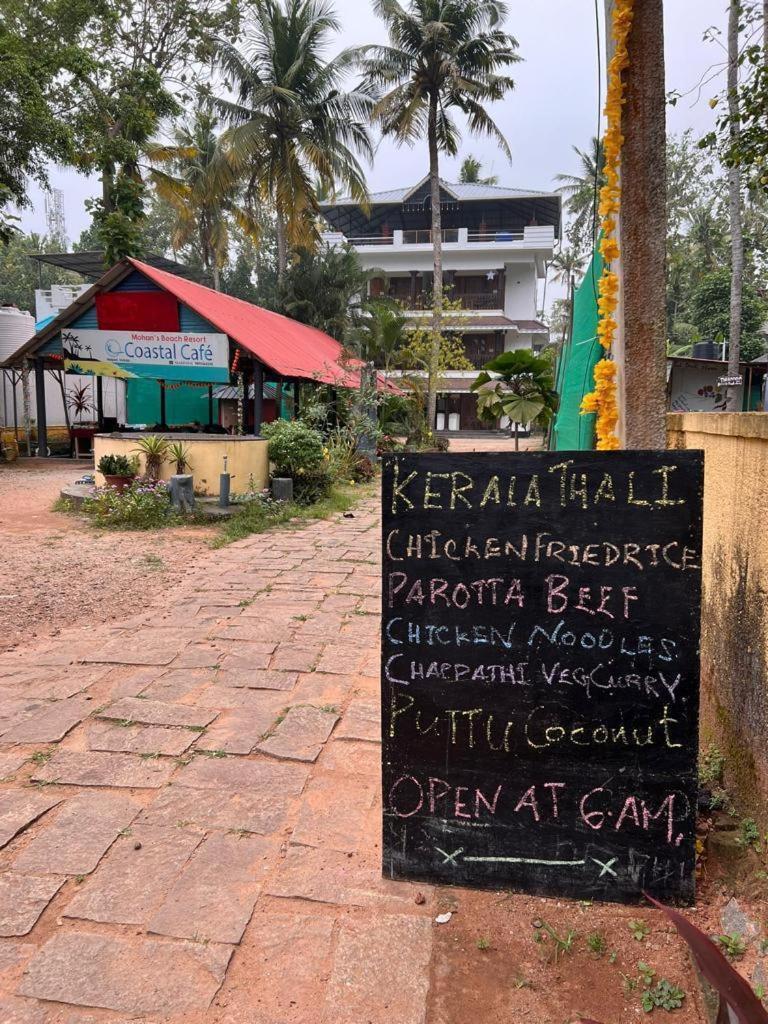 Mohan's Beach Resort
Coastal Café
KERALA THALI
CHICKEN FRIED RICE
PAROTTA BEEF
CHICKEN NOODLES
CHAPPATHI VEG CURRY
PUTTU Coconut
OPEN AT 6.AM,
x x